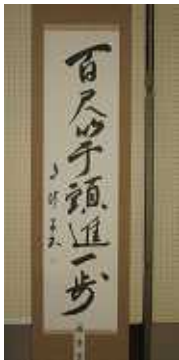 百尺竿頭進一歩